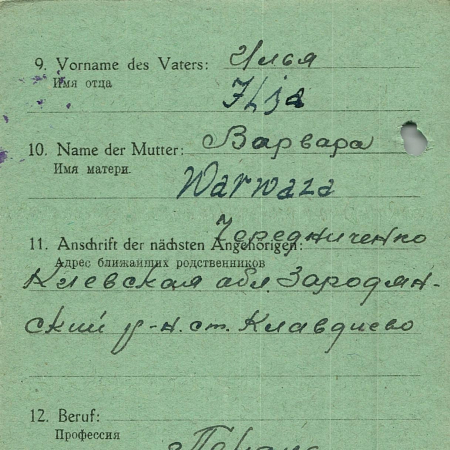 9. Vorname des Vaters: Илья
Имя отца
Ilja
10. Name der Mutter: Варвара
Имя матери.
Warwaza
Чередниченко
11. Anschrift der nächsten Angehörigen:
Адрес ближайших родственников
Киевская обл. Зародян-
ский р-н. ст. Клавдиево
12. Beruf:
Профессия